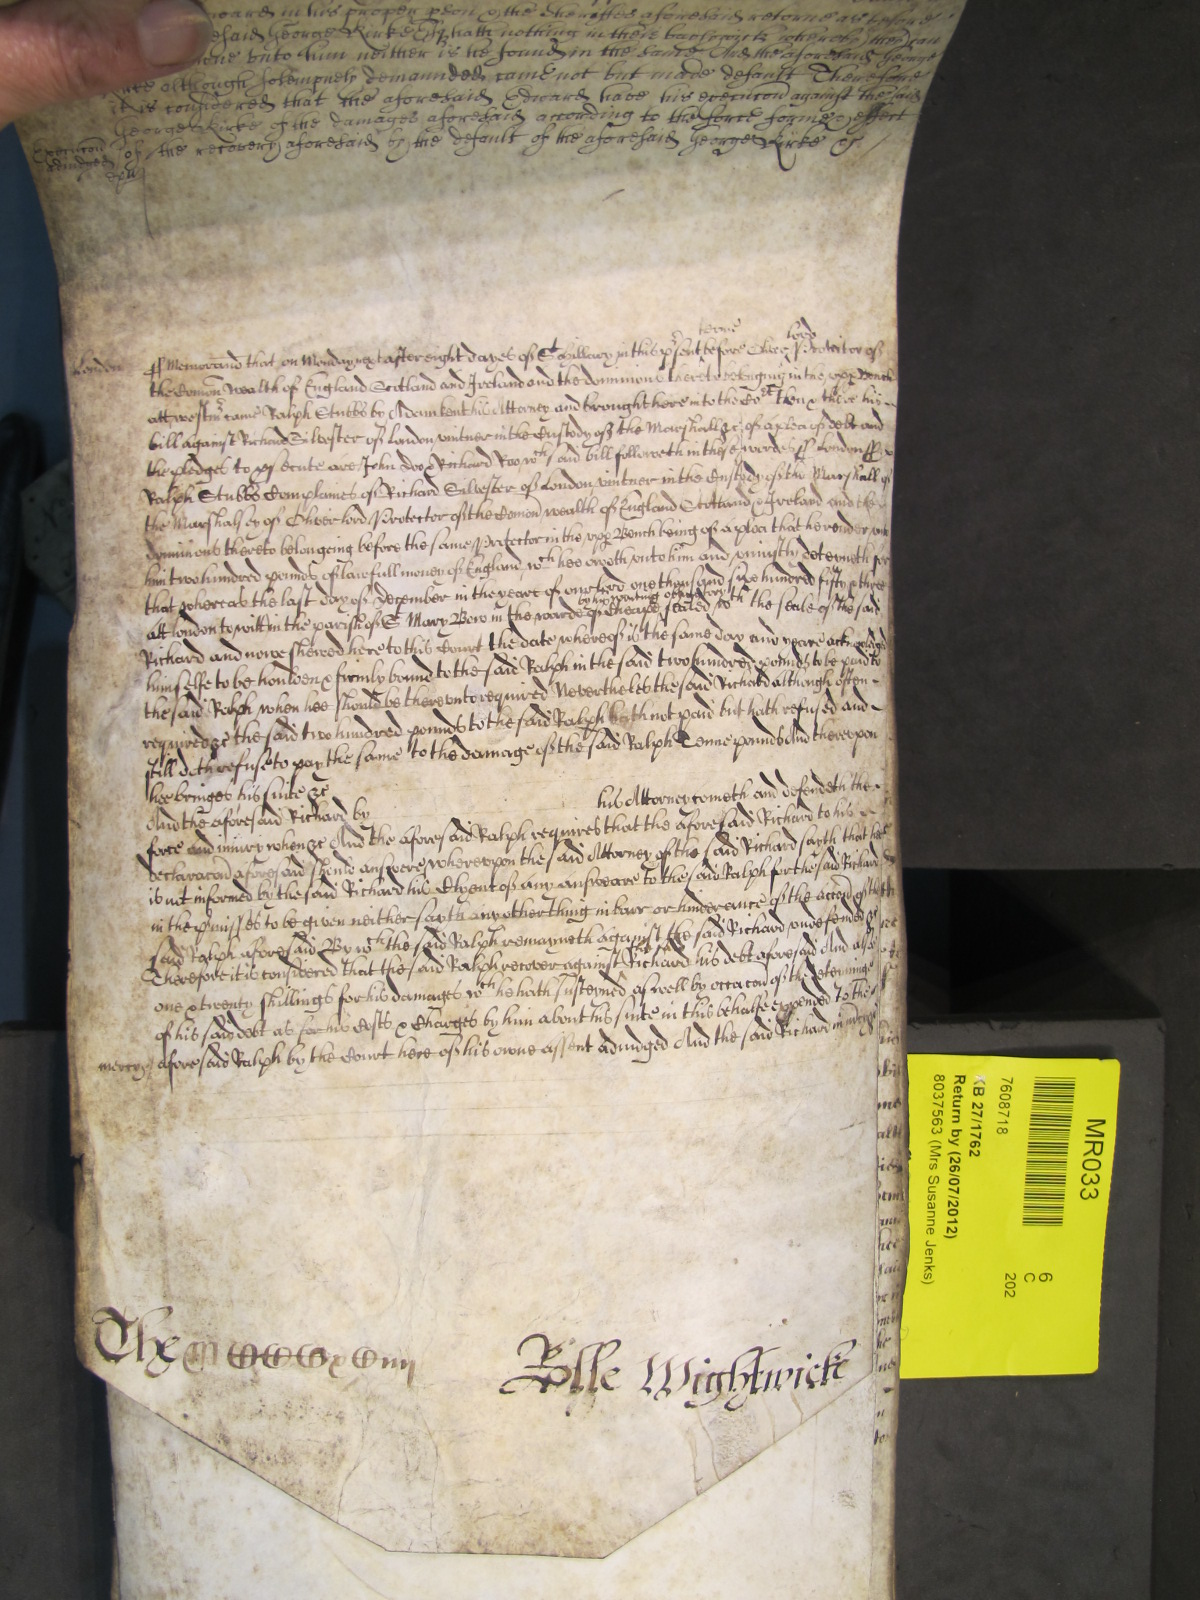 Edward in his proper pson & the sheriffes aforesaid returne as before
aforesaid George Kirke Esqr hath nothing in their baylywick whereby they can
unto him neither is he found in the same And the aforesaid George
Kirke although solempnely demaunded came not but made default Therefore
it is considered that the aforesaid Edward have his execucon against the said
George Kirke of the damages aforesaid according to the force forme & effect
of the recovery aforesaid by the default of the aforesaid George Kirke &c
Execucon
adiudged
London
terme
lord
Memorand that on Monday next after eight dayes of St Hillary in this psent before Oliver Protector of
the Comon Wealth of England Scotland and Ireland and the dominions thereto belonging in the upp Bench
att Westmr came Ralph Stubbs by Adam Kent his Attorney and brought here into the Cort then & there his
bill against Richard Silvester of London vintner in the Custody of the Marshall &c of a plea of debt and
the pledges to psecute are John Doo & Richard Roo wch said bill followeth in these wordes ss London ss
Ralph Stubbs Complaines of Richard Silvester of London vintner in the Custody of the Marshall of
the Marshalsey of Oliver lord Protector of the Comon wealth of England Scotland & Ireland and the
dominions thereto belongeing before the same Protector in the upp Bench being of a plea that he render unto
him two hundred pounds of lawfull money of England wch hee oweth unto him and uniustly deteyneth for
that whereas the last day of December in the yeare of our lord one thousand six hundred fifty & three
by his writing obligatory
att London to witt in the parish of St Mary Bow in the warde of Cheape sealed wth the seale of the said
Richard and now shewed here to this Court the date whereof is the same day and yeare acknowledged
himselfe to be houlden & firmly bound to the said Ralph in the said two hundred pounds to be paid to
the said Ralph when hee should be thereunto required Nevertheles the said Richard although often
required &c the said two hundred pounds to the said Ralph hath not paid but hath refused and
still doth refuse to pay the same to the damage of the said Ralph Tenne pounds And thereupon
hee bringes his suite &c
And the aforesaid Richard by his Attorney cometh and defendeth the
force and iniury when &c And the aforesaid Ralph requires that the aforesaid Richard to his
declaracon aforesaid should answere whereupon the said Attorney of the said Richard sayth that hee
is not informed by the said Richard his Clyent of any answeare to the said Ralph for the said Richard
in the pmisses to be given neither sayth any other thing in barr or hinderance of the accon of the
said Ralph aforesaid By wch the said Ralph remayneth against the said Richard undefended &c
the said
Therefore it is considered that the said Ralph recover against Richard his debt aforesaid And also
one & twenty shillings for his damages wch he hath susteyned as well by occacon of the deteyninge
of his said debt as for his Costs & Charges by him about his suite in this behalfe expended to the
aforesaid Ralph by the Court here of his owne assent adiudged And the said Richard in mercy
mercy
Rolle Wightwicke
MR033
7608718
KB 27/1762
Return by (26/07/2012)
8037563 (Mrs Susanne Jenks)
6
C
202